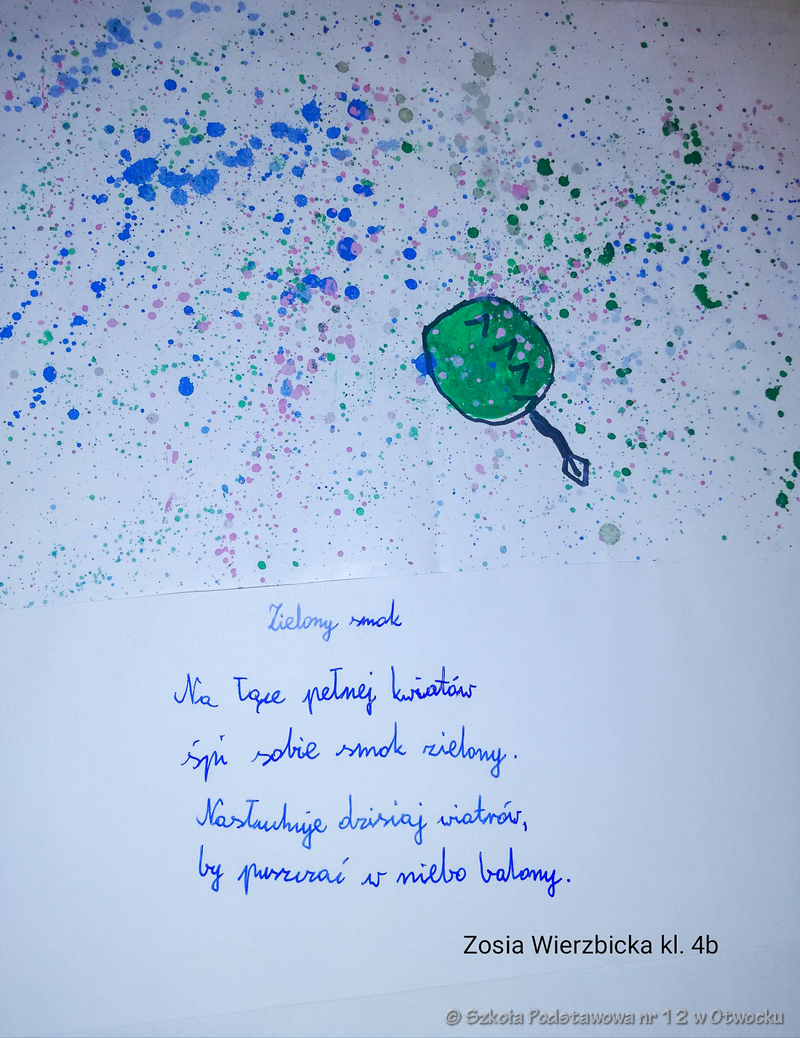 Zielony smok
Na łące pełnej kwiatów
śpi sobie smok zielony.
Nasłuchuje dzisiaj wiatrów,
by puszczać w niebo balony.
Zosia Wierzbicka kl. 4b
© Szkoła Podstawowa nr 12 w Otwocku